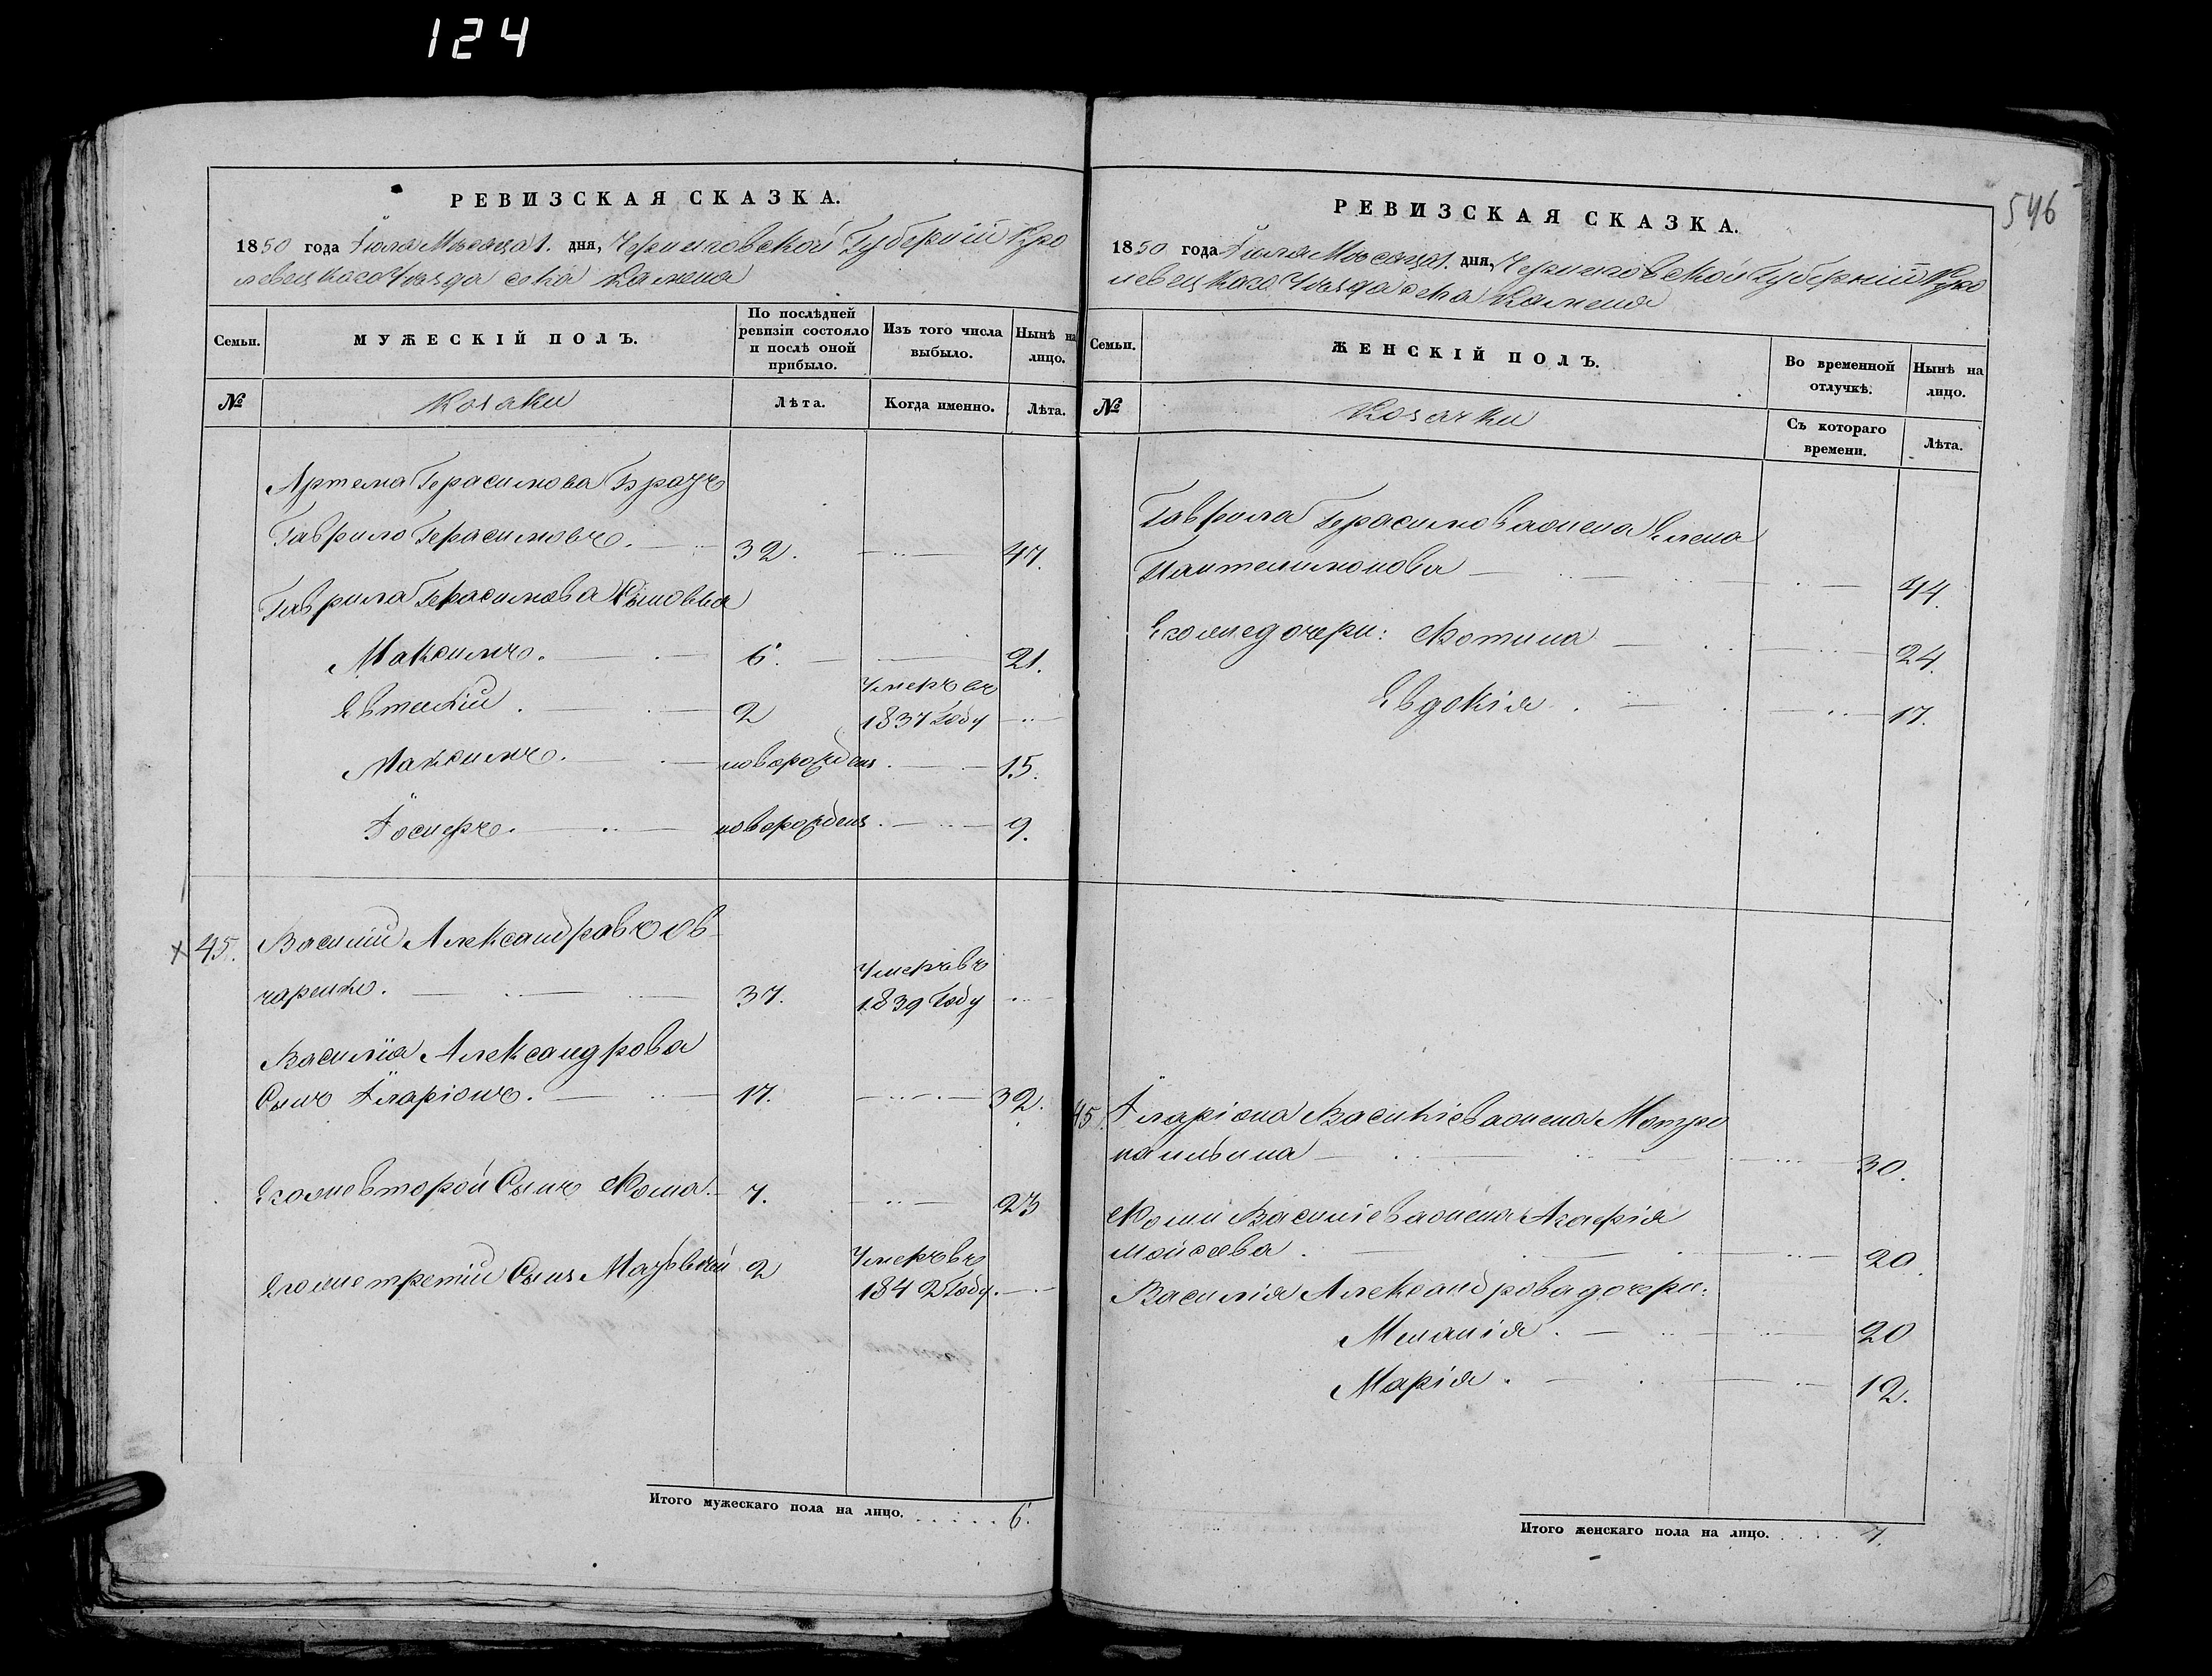 124
РЕВИЗСКАЯ СКАЗКА.
1850 года Іюля Мѣсяца 1. дня, Черниговской Губерніи Кро
левецкаго Уѣзда села Каменя
Семьи.
МУЖЕСКІЙ ПОЛЪ.
По послѣдней ревизіи состояло и послѣ оной прибыло.
Изъ того числа выбыло.
Ныне на лицо.
№
Козаки
Лѣта.
Когда именно.
Лѣта.
Артема Герасимова Братъ
Гаврило Герасимовъ. 32. 47.
Гаврила Герасимова Сыновья
Максимъ. 6. 21.
Евтихій. 2 Умеръ въ 1837 Году
Максимъ. новорожденъ. 15.
Іосифъ. новорожденъ. 9.
45. Василій Александровъ Ов
чаренко. 37. Умеръ въ 1839 Году
Василія Александрова
Сынъ Іларіонъ. 17. 32.
Егоже второй Сынъ Фома. 7. 23
Егоже третій Сынъ 2 Умеръ въ 1842 Году.
Итого мужескаго пола на лицо. 6.
546
РЕВИЗСКАЯ СКАЗКА.
1850 года Іюля Мѣсяца 1. дня, Черниговской Губерніи Кро
левецкаго Уѣзда села Каменя
Семьи.
ЖЕНСКІЙ ПОЛЪ.
Во временной отлучкѣ.
Нынѣ на лицо.
№
Козачки
Съ котораго времени.
Лѣта.
Гаврила Герасимова жена Елена
Пантелимонова 44.
Егоже дочери: Фотина 24.
Евдокія 17.
45. Іларіона Васильева жена Мотро
на ильина 30.
Фомы Васильева жена Агафія
Моисеева. 20.
Василія Александрова дочери:
Меланія. 20
Марія. 12.
Итого женскаго пола на лицо. 7.